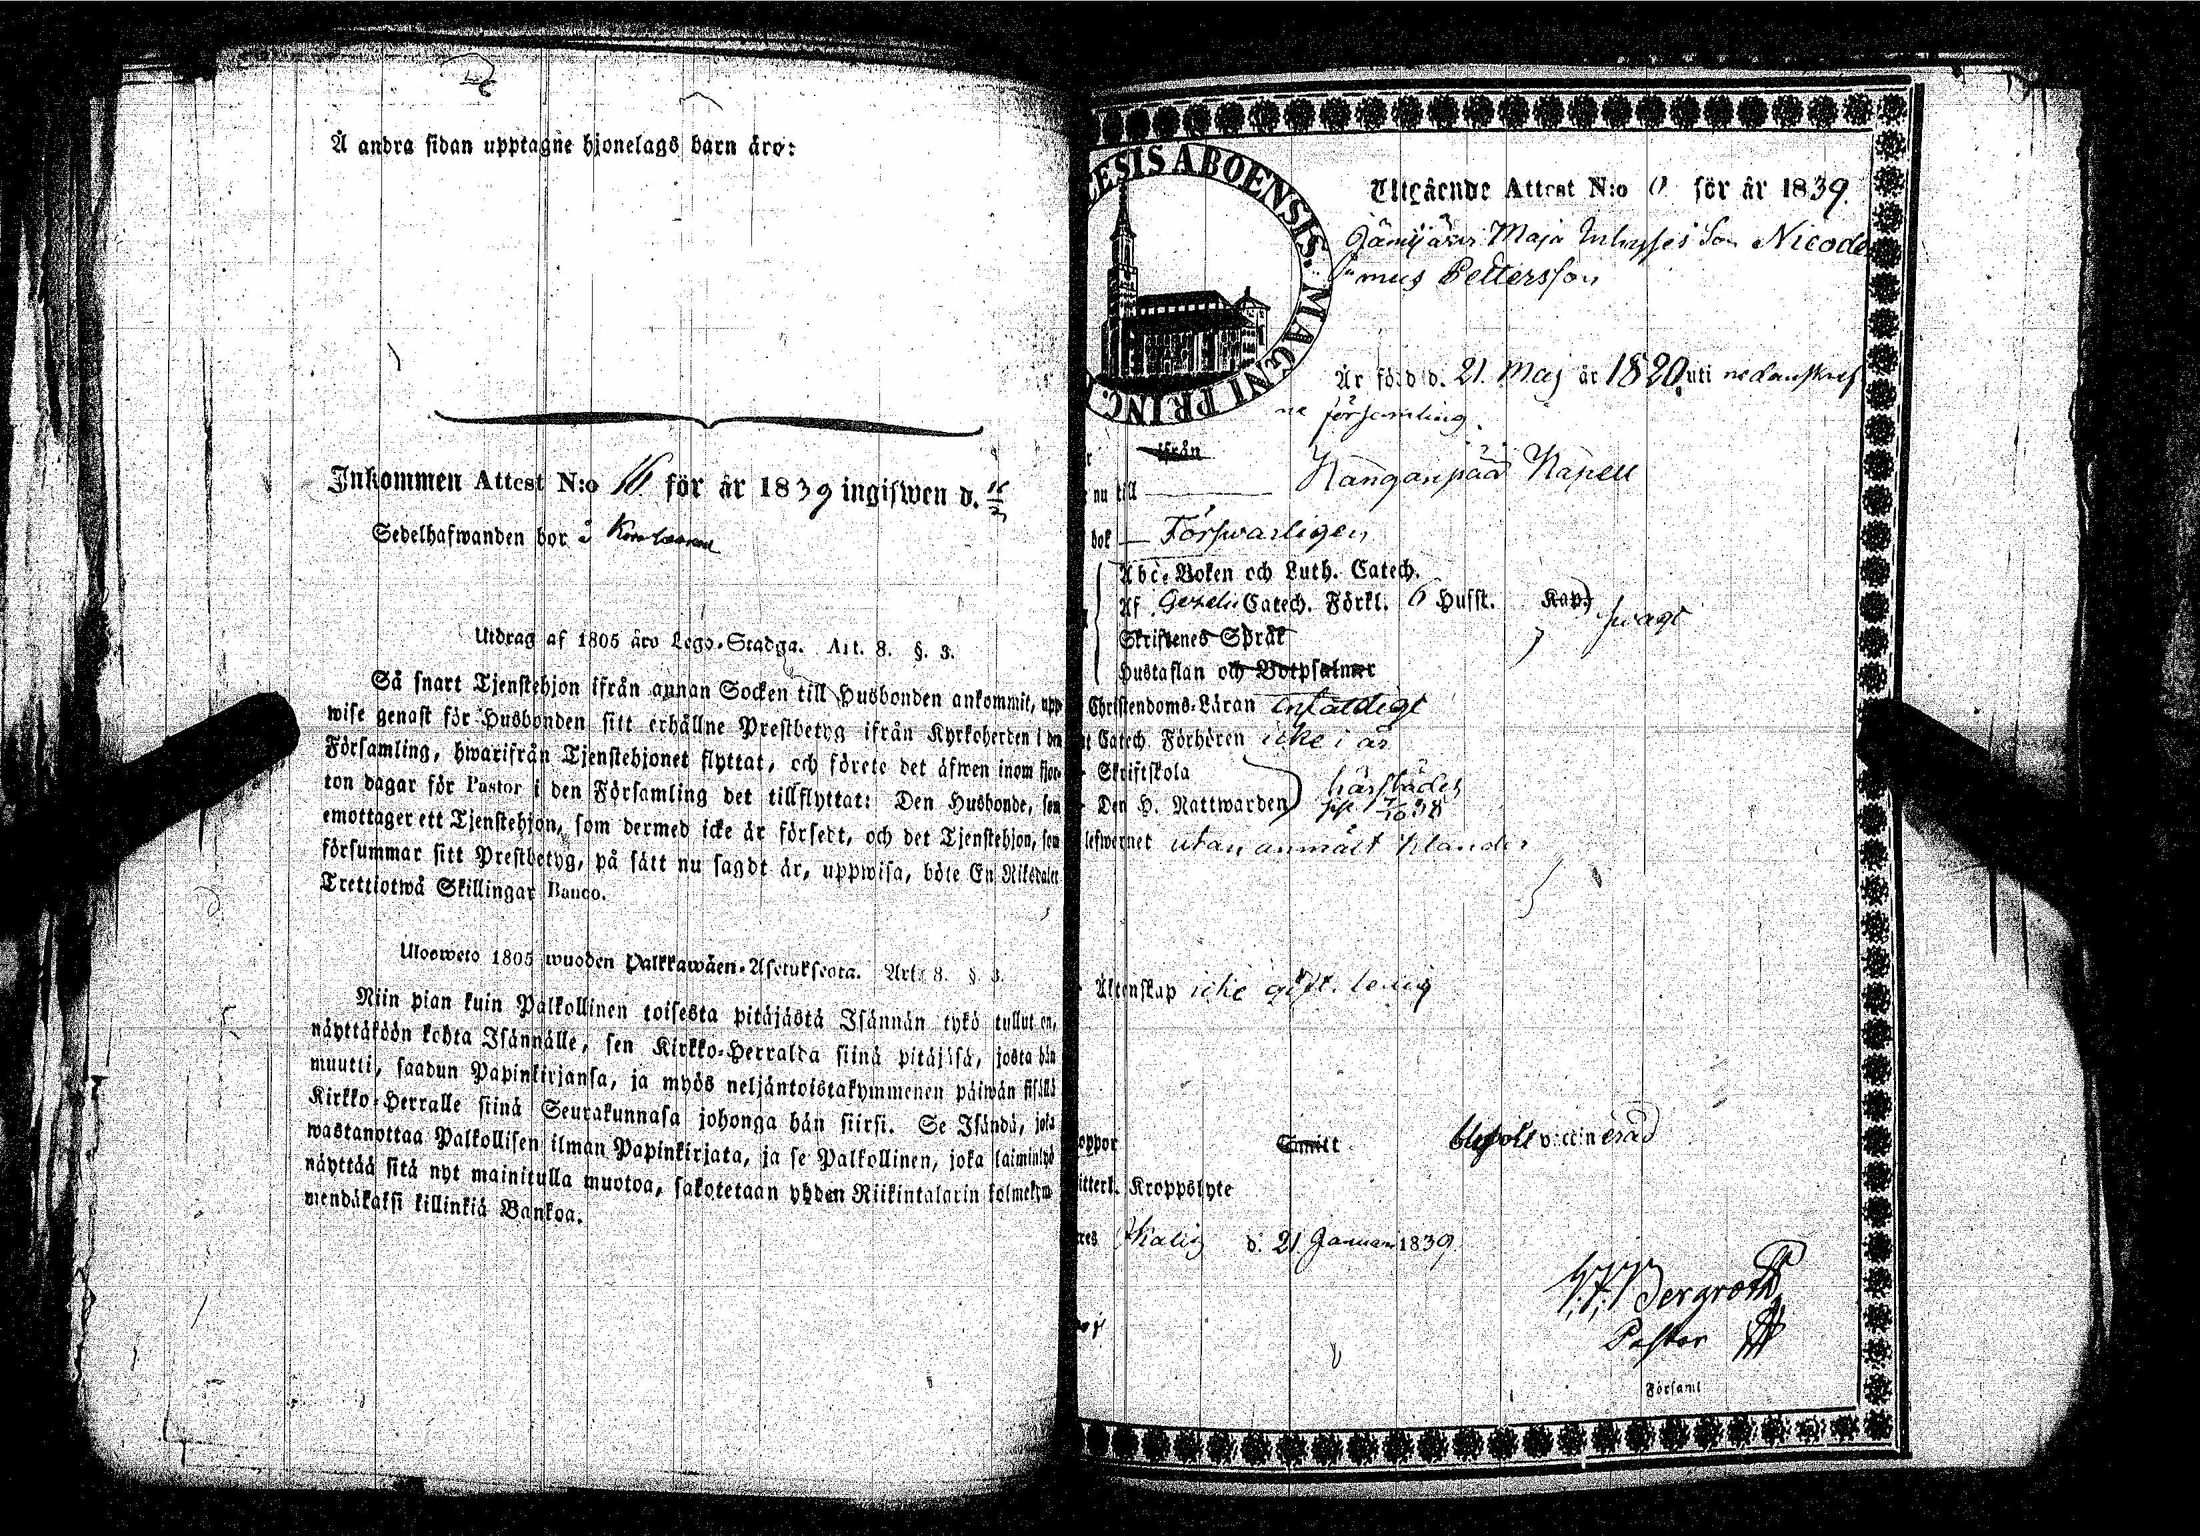 Å andra sidan upptagne hjonelags barn äro:
Inkommen Attest N:o 16. för år 1839 ingifwen d.
Sedelhafwanden bor å
Utdrag af 1805 års Lego-Stadga. Art. 8. §. 3.
Så snart Tjenstehjon ifrån annan Socken till Husbonden ankommit, upp
wise genast för Husbonden sitt erhållne Prestbetyg ifrån Kyrkoherden i den
Församling, hwarifrån Tjenstehjonet flyttat, och förete det äfwen inom fjor-
ton dagar för Pastor i den Församling det tillflyttat: Den Husbonde, sem
emottager ett Tjenstehjon, som dermed icke är försedt, och det Tjenstehjon, som
försummar sitt Prestbetyg, på sätt nu sagdt är, uppwisa, böte En Riksdaler
Trettiotwå Skillingar Banco.
Uloosweto 1805 wuoden Palkkawäen-Asetuksesta. Art. 8. §. 3.
Niin pian kuin Palkollinen toisesta pitäjästä Isännän tykö tullut on,
näyttäköön kohta Isännälle, sen Kirkko-Herralda siinä pitäjäsä, josta hän
muutti, saadun Papinkirjansa, ja myös neljäntoistakymmenen päiwän sisällä
Kirkko-Herralle siinä Seurakunnasa johonga hän siirsi. Se Isändä, joka
wastanottaa Palkollisen ilman Papinkirjata, ja se Palkollinen, joka laiminlyö
näyttää sitä nyt mainitulla muotoa, sakotetaan yhden Riikintalarin kolmekym
mendäkaksi killinkiä Bankoa.
CESIS ABOENSIS. MAGNI PRINC.
Utgående Attest N:o för år 1839.
Maja Inhyses Son Nicode
mus Pettersson
Är född d. 21. Maj år 1820 uti nedanskref
ne församling.
ifrån
nu till Kanganpää Kapell
bok Förswarligen
Abc-Boken och Luth. Catech.
Af Gezelii Catech. Förkl. 6 Hufst. Kap. swagt
Skriftenes Språk
Hustaflan och Botpsalmer
Christendoms-Läran enfaldigt
Catech. Förhören icke i år
Skriftskola härstädes
Den H. Nattwarden
lefwernet utan anmält klander
Äktenskap icke gift. ledig
oppor Smitt vaccinerad
itterl. Kroppslyte
res d. 21 Januari 1839.
Bergroth
Pastor
Församl